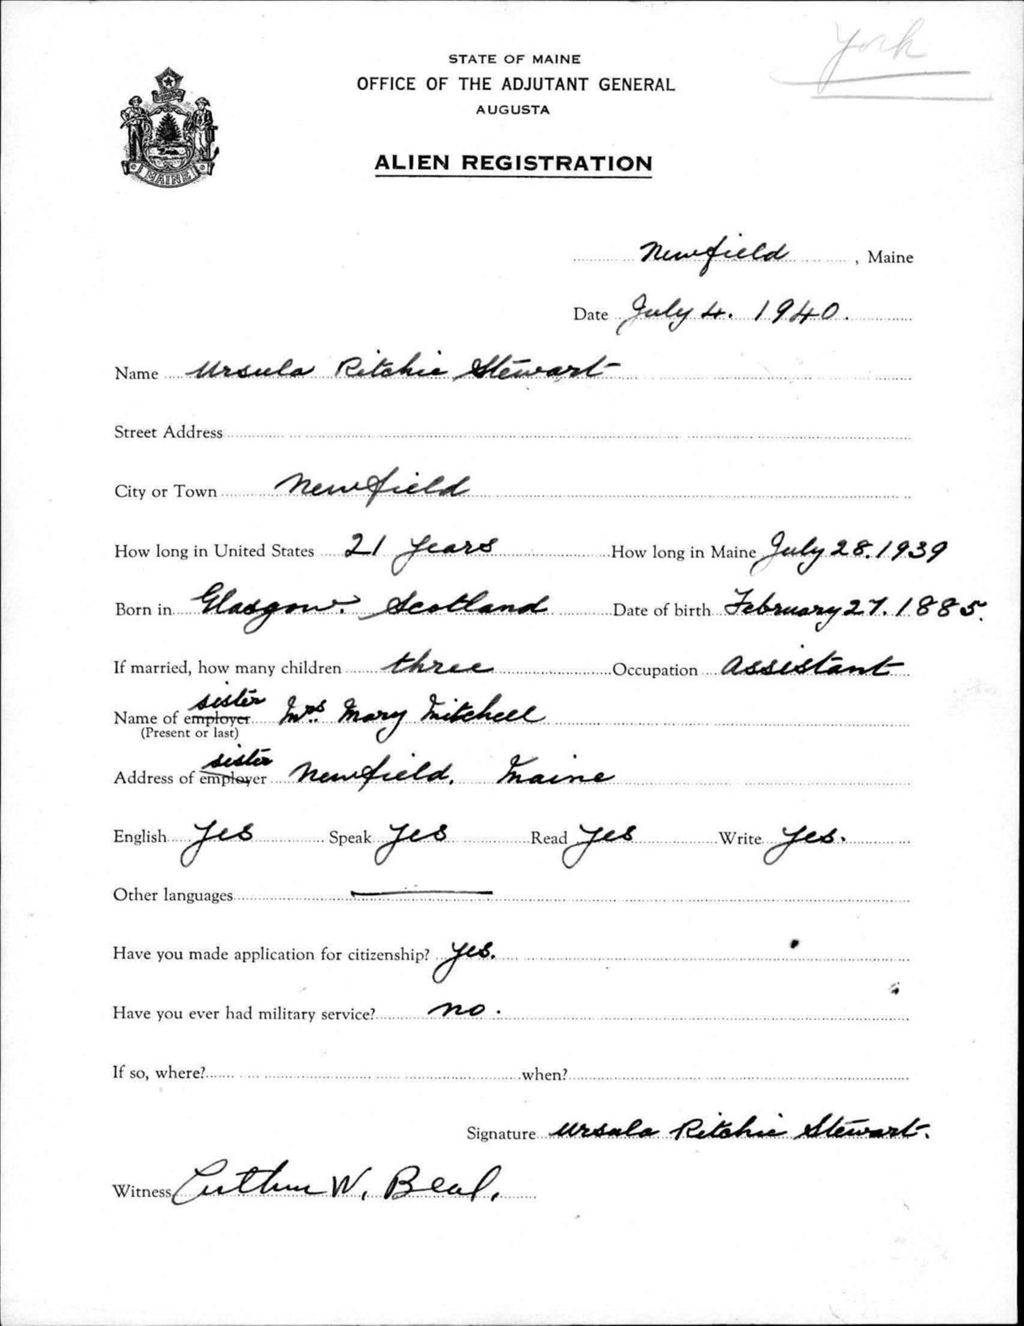 York
STATE OF MAINE
OFFICE OF THE ADJUTANT GENERAL
AUGUSTA
MAINE
ALIEN REGISTRATION
Newfield, Maine
Date July 4. 1940.
Name Ursula Ritchie Stewart
Street Address
City or Town Newfield
How long in United States 21 years How long in Maine July 28. 1939
Born in Glasgow. Scotland Date of birth February 27. 1885.
If married, how many children three Occupation Assistant
sister
Name of employer Mrs. Mary Mitchell
(Present or last)
sister
Address of employer Newfield. Maine
English Yes Speak Yes Read Yes Write Yes.
Other languages
Have you made application for citizenship? Yes.
Have you ever had military service? no.
If so, where? when?
Signature Ursula Ritchie Stewart.
Witness W. Beal.